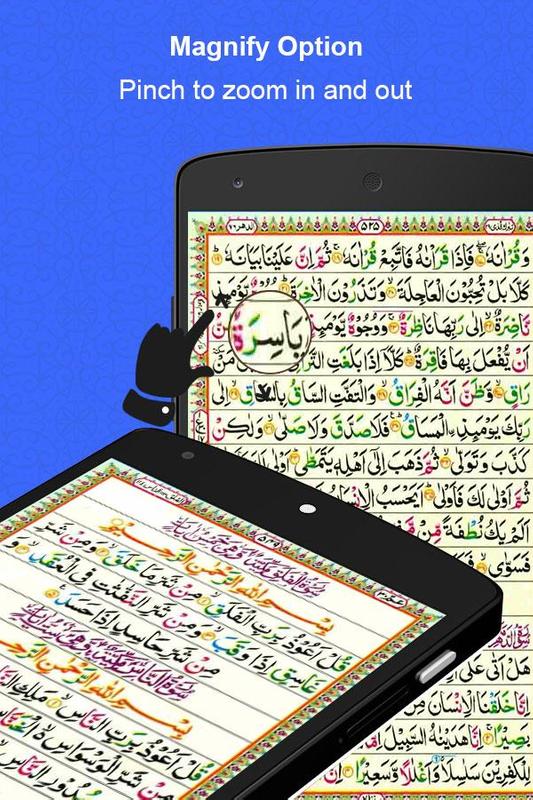 Magnify Option
Pinch to zoom in and out
۵۲۵
وَقُرْاٰنَهٗ فَاِذَا قَرَاْنٰهُ فَاتَّبِعْ قُرْاٰنَهٗ ثُمَّ اِنَّ عَلَيْنَا بَيَانَهٗ
كَلَّا بَلْ تُحِبُّوْنَ الْعَاجِلَةَ وَتَذَرُوْنَ الْاٰخِرَةَ وُجُوْهٌ يَّوْمَىِٕذٍ
نَّاضِرَةٌ اِلٰى رَبِّهَا نَاظِرَةٌ وَوُجُوْهٌ يَّوْمَىِٕذٍ بَاسِرَةٌ
اَنْ يُّفْعَلَ بِهَا فَاقِرَةٌ كَلَّا اِذَا بَلَغَتِ مَنْ
رَاقٍ وَّظَنَّ اَنَّهُ الْفِرَاقُ وَالْتَفَّتِ السَّاقُ بِالسَّاقِ اِلٰى
رَبِّكَ يَوْمَىِٕذِ الْمَسَاقُ فَلَا صَدَّقَ وَلَا صَلّٰى وَلٰكِنْ
كَذَّبَ وَتَوَلّٰى ثُمَّ ذَهَبَ اِلٰى اَهْلِهٖ يَتَمَطّٰى اَوْلٰى
ثُمَّ اَوْلٰى لَكَ فَاَوْلٰى اَيَحْسَبُ
اَلَمْ يَكُ نُطْفَةً مِّنْ
فَسَوّٰى
هَلْ اَتٰى عَلَى
اِنَّا خَلَقْنَا الْاِنْسَانَ مِنْ
بَصِيْرًا اِنَّا هَدَيْنٰهُ السَّبِيْلَ
لِلْكٰفِرِيْنَ سَلٰسِلَا وَاَغْلٰلًا وَّسَعِيْرًا اِنَّ
بِسْمِ اللّٰهِ الرَّحْمٰنِ الرَّحِيْمِ
قُلْ اَعُوْذُ بِرَبِّ الْفَلَقِ مِنْ شَرِّ مَا خَلَقَ وَمِنْ شَرِّ
غَاسِقٍ اِذَا وَقَبَ وَمِنْ شَرِّ النَّفّٰثٰتِ فِي الْعُقَدِ وَ
مِنْ شَرِّ حَاسِدٍ اِذَا حَسَدَ
بِسْمِ اللّٰهِ الرَّحْمٰنِ الرَّحِيْمِ
قُلْ اَعُوْذُ بِرَبِّ النَّاسِ مَلِكِ
مِنْ شَرِّ الْوَسْوَاسِ
صُدُوْرِ النَّاسِ